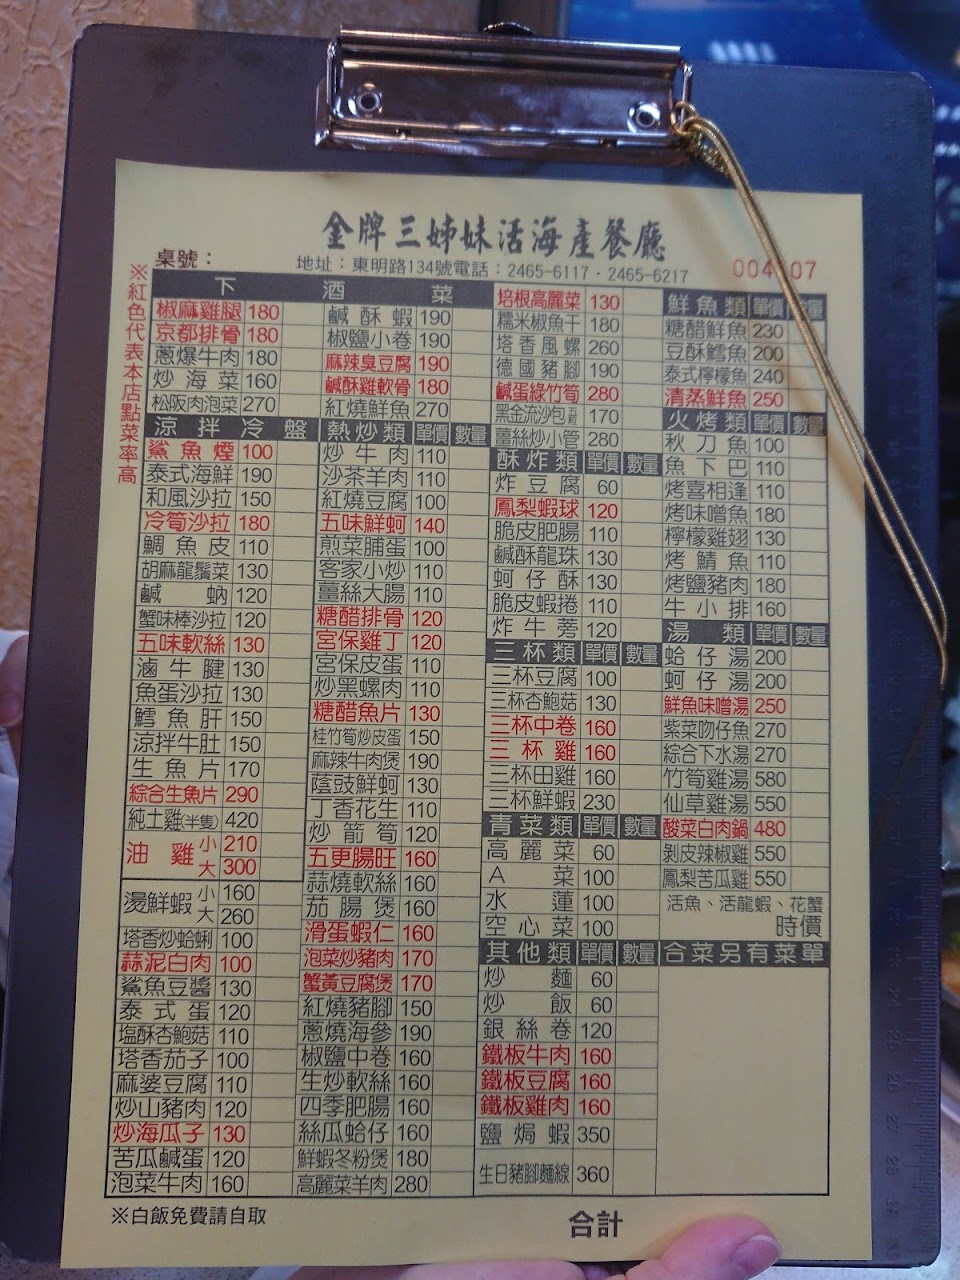 金牌三姊妹活海產餐廳
桌號：
地址：東明路134號電話：2465-6117．2465-6217
※紅色代表本店點菜率高
下酒菜
椒麻雞腿 180
京都排骨 180
蔥爆牛肉 180
炒海菜 160
松阪肉泡菜 270
鹹酥蝦 190
椒鹽小卷 190
麻辣臭豆腐 190
鹹酥雞軟骨 180
紅燒鮮魚 270
培根高麗菜 130
糯米椒魚干 180
塔香風螺 260
德國豬腳 190
鹹蛋綠竹筍 280
黑金流沙包 170
薑絲炒小管 280
涼拌冷盤
鯊魚煙 100
泰式海鮮 190
和風沙拉 150
冷筍沙拉 180
鯛魚皮 110
胡麻龍鬚菜 130
鹹蚋 120
蟹味棒沙拉 120
五味軟絲 130
滷牛腱 130
魚蛋沙拉 130
鱈魚肝 150
涼拌牛肚 150
生魚片 170
綜合生魚片 290
純土雞(半隻) 420
油雞 小 210
大 300
燙鮮蝦 小 160
大 260
塔香炒蛤蜊 100
蒜泥白肉 100
鯊魚豆醬 130
泰式蛋 120
塩酥杏鮑菇 110
塔香茄子 100
麻婆豆腐 110
炒山豬肉 120
炒海瓜子 130
苦瓜鹹蛋 120
泡菜牛肉 160
熱炒類 單價 數量
炒牛肉 110
沙茶羊肉 110
紅燒豆腐 100
五味鮮蚵 140
煎菜脯蛋 100
客家小炒 110
薑絲大腸 110
糖醋排骨 120
宮保雞丁 120
宮保皮蛋 110
炒黑螺肉 110
糖醋魚片 130
桂竹筍炒皮蛋 150
麻辣牛肉煲 190
蔭豉鮮蚵 130
丁香花生 110
炒箭筍 120
五更腸旺 160
蒜燒軟絲 160
茄腸煲 160
滑蛋蝦仁 160
泡菜炒豬肉 170
蟹黃豆腐煲 170
紅燒豬腳 150
蔥燒海參 190
椒鹽中卷 160
生炒軟絲 160
四季肥腸 160
絲瓜蛤仔 160
鮮蝦冬粉煲 180
高麗菜羊肉 280
酥炸類 單價 數量
炸豆腐 60
鳳梨蝦球 120
脆皮肥腸 110
鹹酥龍珠 130
蚵仔酥 130
脆皮蝦捲 110
炸牛蒡 120
三杯類 單價 數量
三杯豆腐 100
三杯杏鮑菇 130
三杯中卷 160
三杯雞 160
三杯田雞 160
三杯鮮蝦 230
青菜類 單價 數量
高麗菜 60
A菜 100
水蓮 100
空心菜 100
其他類 單價 數量
炒麵 60
炒飯 60
銀絲卷 120
鐵板牛肉 160
鐵板豆腐 160
鐵板雞肉 160
鹽焗蝦 350
生日豬腳麵線 360
鮮魚類 單價 數量
糖醋鮮魚 230
豆酥鱈魚 200
泰式檸檬魚 240
清蒸鮮魚 250
火烤類 單價 數量
秋刀魚 100
魚下巴 110
烤喜相逢 110
烤味噌魚 180
檸檬雞翅 130
烤鯖魚 110
烤鹽豬肉 180
牛小排 160
湯類 單價 數量
蛤仔湯 200
蚵仔湯 200
鮮魚味噌湯 250
紫菜吻仔魚 270
綜合下水湯 270
竹筍雞湯 580
仙草雞湯 550
酸菜白肉鍋 480
剝皮辣椒雞 550
鳳梨苦瓜雞 550
活魚、活龍蝦、花蟹
時價
合菜另有菜單
※白飯免費請自取
合計